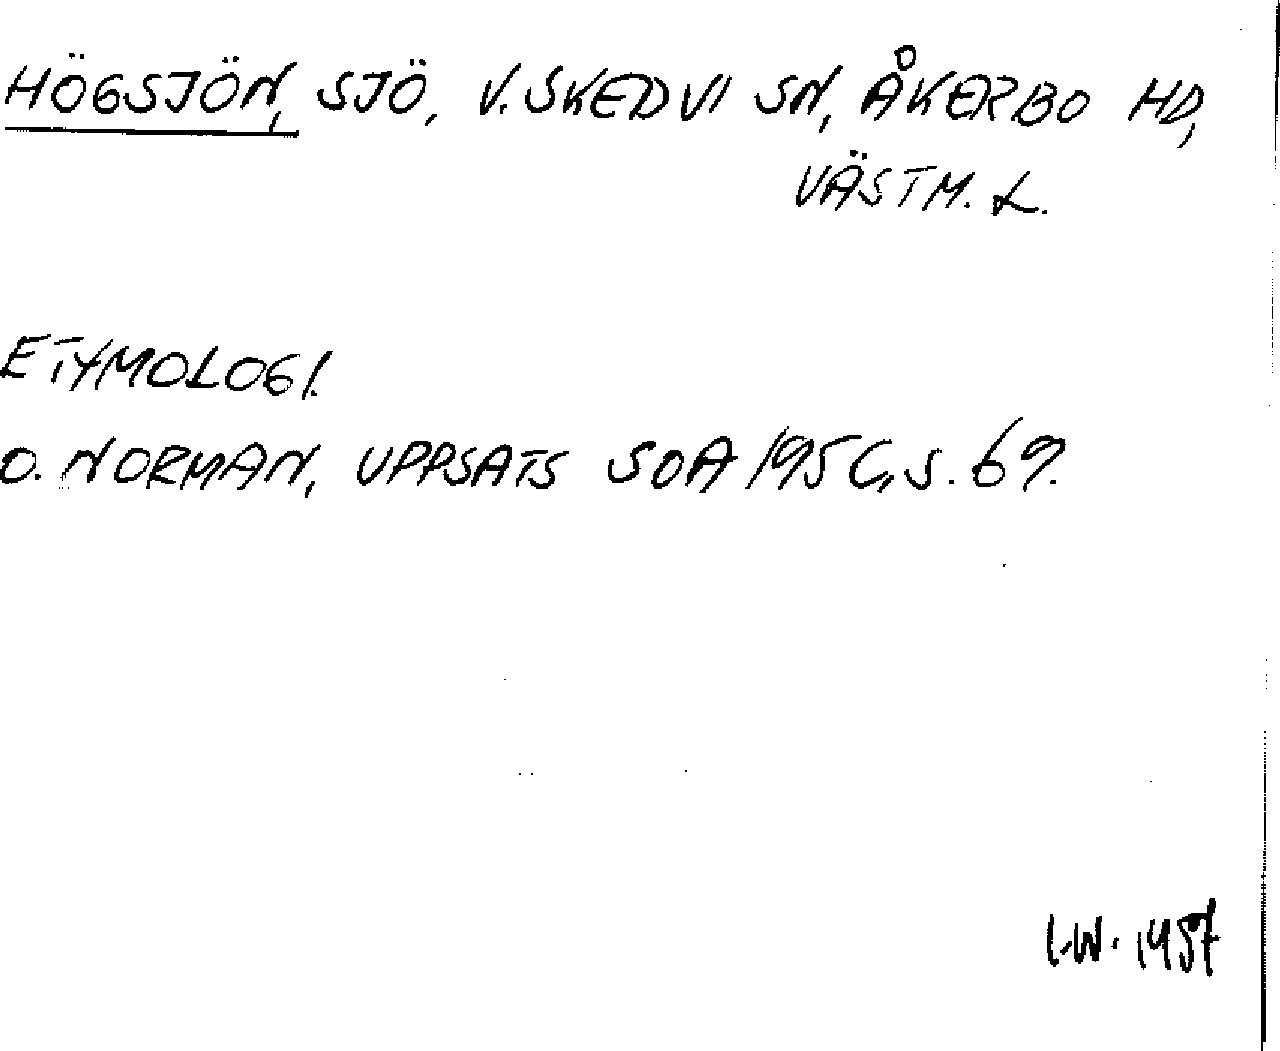 HÖGSJÖN, SJÖ, V. SKEDVI SN, ÅKERBO HD,
VÄSTM. L.
ETYMOLOGI.
O. NORMAN, UPPSATS SOA 1956, S. 69.
I.W. 1957